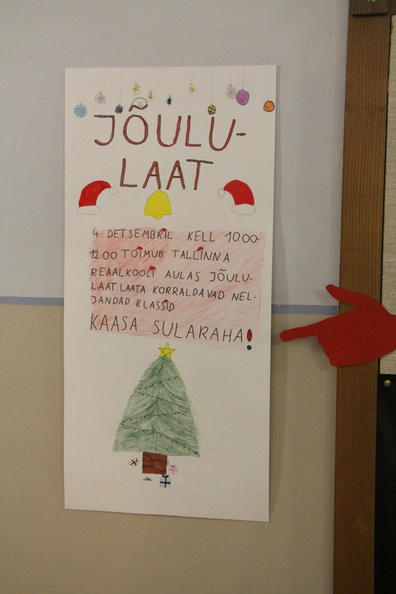 JÕULU-
LAAT
4. DETSEMBRIL KELL 10.00-
12.00 TOIMUB TALLINNA
REAALKOOLI AULAS JÕULU-
LAAT. LAATA KORRALDAVAD NEL-
JANDAD KLASSID
KAASA SULARAHA!